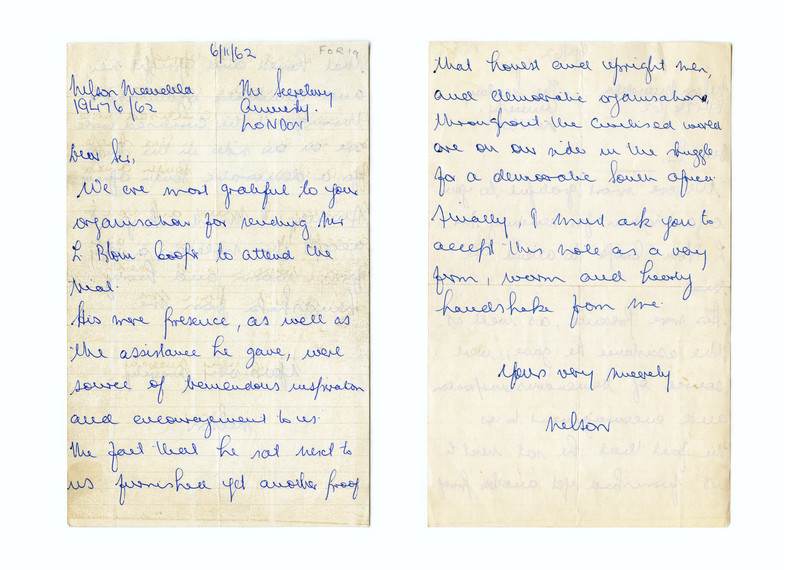 6/11/62
FOR 19
Nelson Mandela
19476/62
The Secretary
Amnesty.
LONDON
Dear Sir,
We are most grateful to your
organisation for sending Mr
L Blom Cooper to attend the
trial.
His mere presence, as well as
the assistance he gave, were
source of tremendous inspiration
and encouragement to us.
The fact that he sat next to
us furnished yet another proof
that honest and upright men,
and democratic organisations,
throughout the civilised world
are on our side in the struggle
for a democratic South Africa.
Finally, I must ask you to
accept this note as a very
firm, warm and hearty
handshake from me.
Yours very sincerely
Nelson